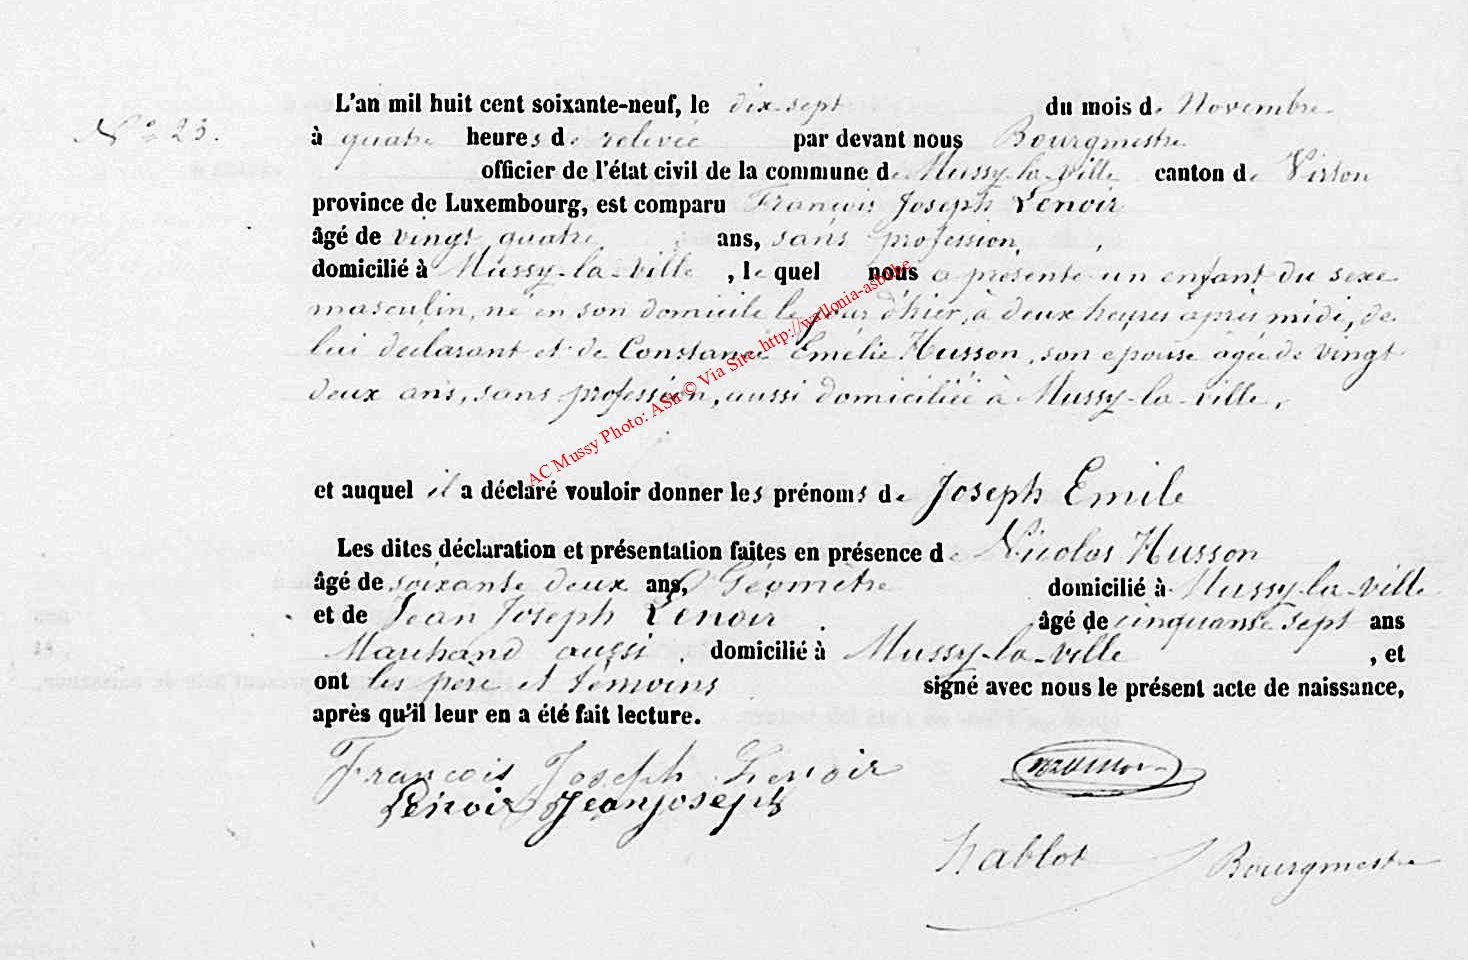 L'an mil huit cent soixante-neuf, le dix sept du mois de Novembre
N° 23.
à quatre heures de relevée par devant nous Bourgmestre
officier de l'état civil de la commune de Mussy-la-ville canton de Virton
province de Luxembourg, est comparu François Joseph Lenoir
âgé de vingt quatre ans, sans profession,
domicilié à Mussy-la-ville, le quel nous a présenté un enfant du sexe
masculin, né en son domicile le jour d'hier, à deux heures après midi, de
lui déclarant et de Constance Emélie Husson, son épouse agée de vingt
deux ans, sans profession, aussi domiciliée à Mussy-la-ville,
et auquel il a déclaré vouloir donner les prénoms de Joseph Emile
Les dites déclaration et présentation faites en présence de Nicolas Husson
âgé de soixante deux ans, Géomètre domicilié à Mussy-la-ville
et de Jean Joseph Lenoir âgé de cinquante sept ans
Marchand aussi domicilié à Mussy-la-ville, et
ont les père et témoins signé avec nous le présent acte de naissance,
après qu'il leur en a été fait lecture.
François Joseph Lenoir
Lenoir Jean joseph
hablot Bourgmestre
AC Mussy Photo: ASh © Via Site http://wallonia-asbl.be